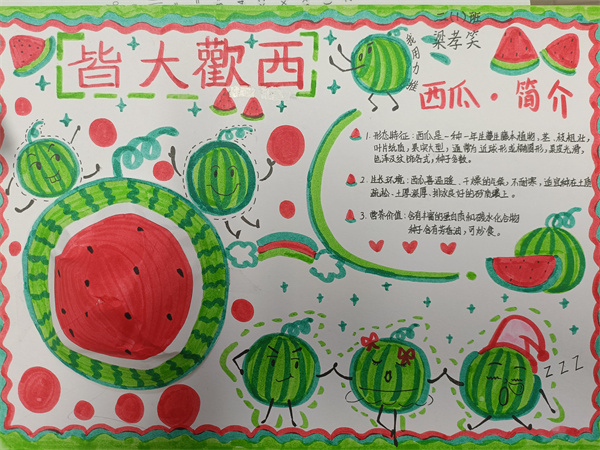 皆大歡西
二(1)班
梁孝笑
我用力推
西瓜·简介
1. 形态特征：西瓜是一种一年生蔓生藤本植物，茎、枝粗壮，
叶片纸质，果实大型，通常为近球形或椭圆形，果皮光滑，
色泽及纹饰各式，种子多数。
2. 生长环境：西瓜喜温暖、干燥的气候，不耐寒，适宜种在土质
疏松、土层深厚、排水良好的砂质壤土。
3. 营养价值：含有丰富的蛋白质和碳水化合物
种子含有芳香油，可炒食。
ZZZ